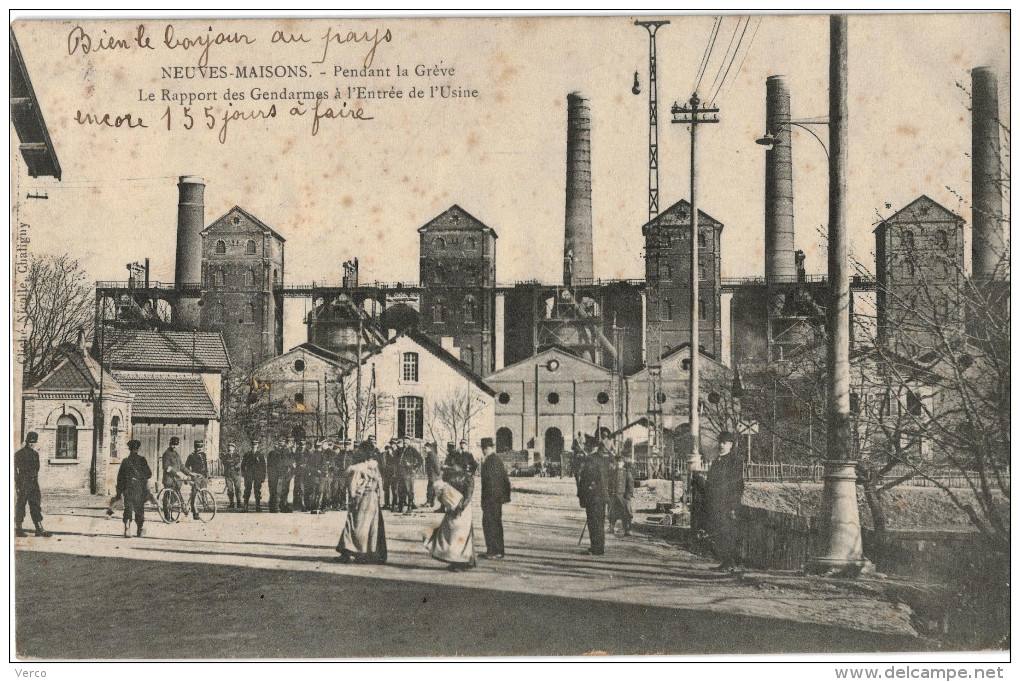 Bien le bonjour au pays
NEUVES-MAISONS. - Pendant la Grève
Le Rapport des Gendarmes à l'Entrée de l'Usine
encore 155 jours à faire
Cliché Nicolle, Chaligny
Verco
www.delcampe.net